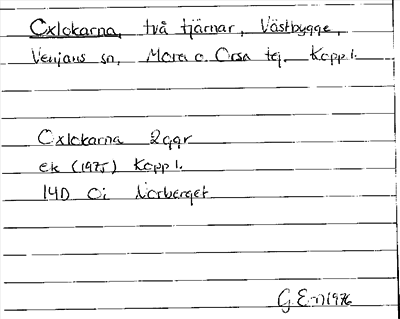 Oxlokarna, två tjärnar, Västbygge,
Venjans sn, Mora o. Orsa tg. Kopp l.
Oxlokarna 2ggr
ek (1975) Kopp l.
14D 0i Norberget
G E-n 1976